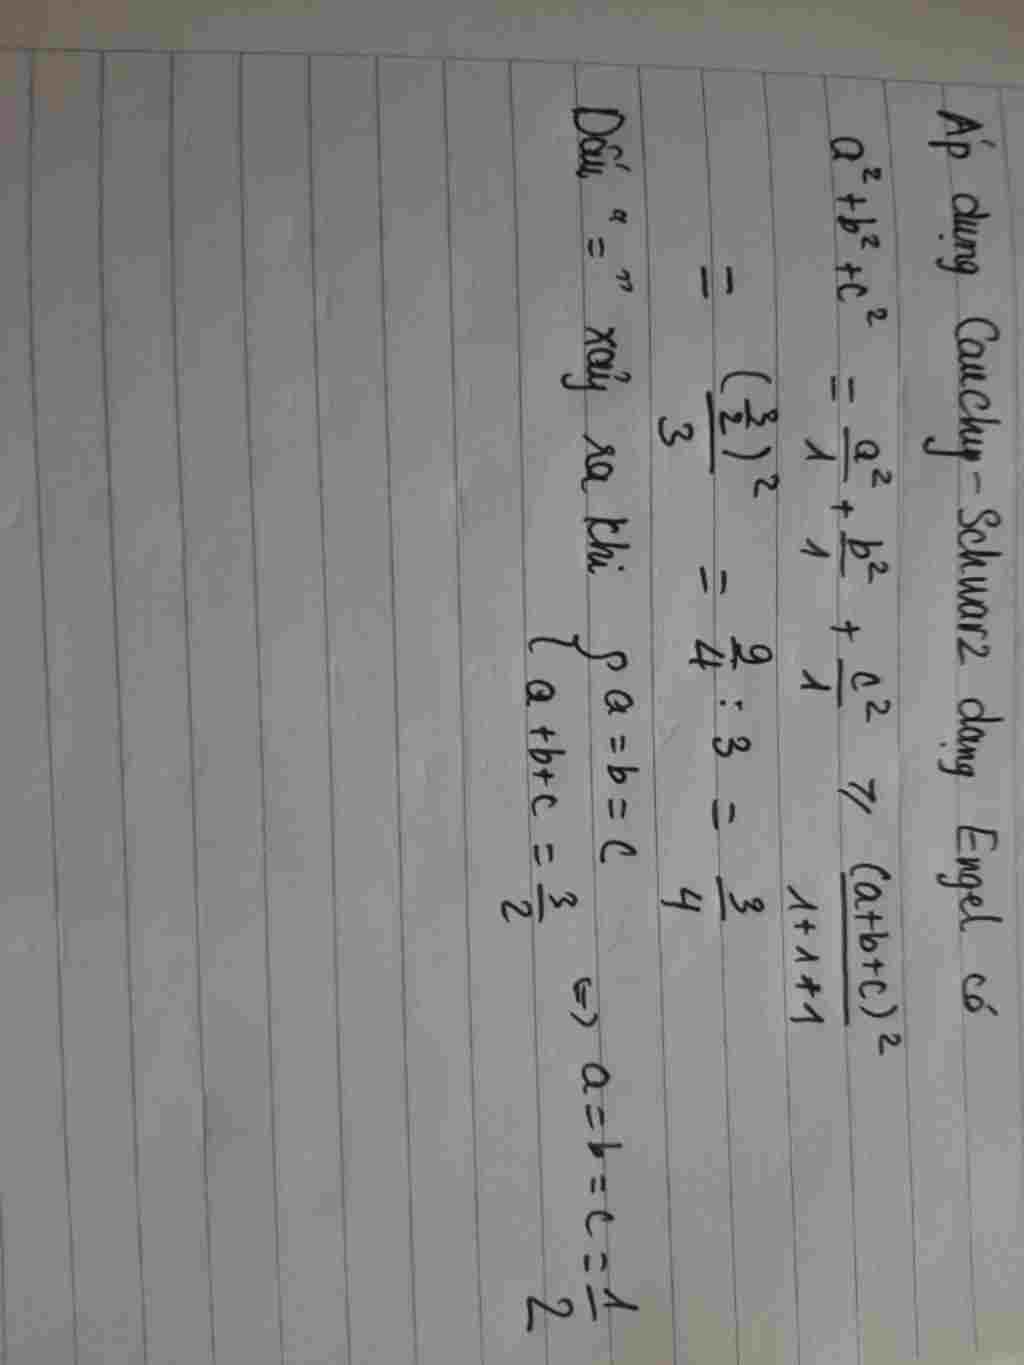 Áp dụng Cauchy-Schwarz dạng Engel có
a² + b² + c² = a²/1 + b²/1 + c²/1 ⩾ (a+b+c)²/1+1+1
= (3/2)²/3 = 9/4 : 3 = 3/4
Dấu "=" xảy ra khi { a = b = c
a + b + c = 3/2 ⇔ a = b = c = 1/2